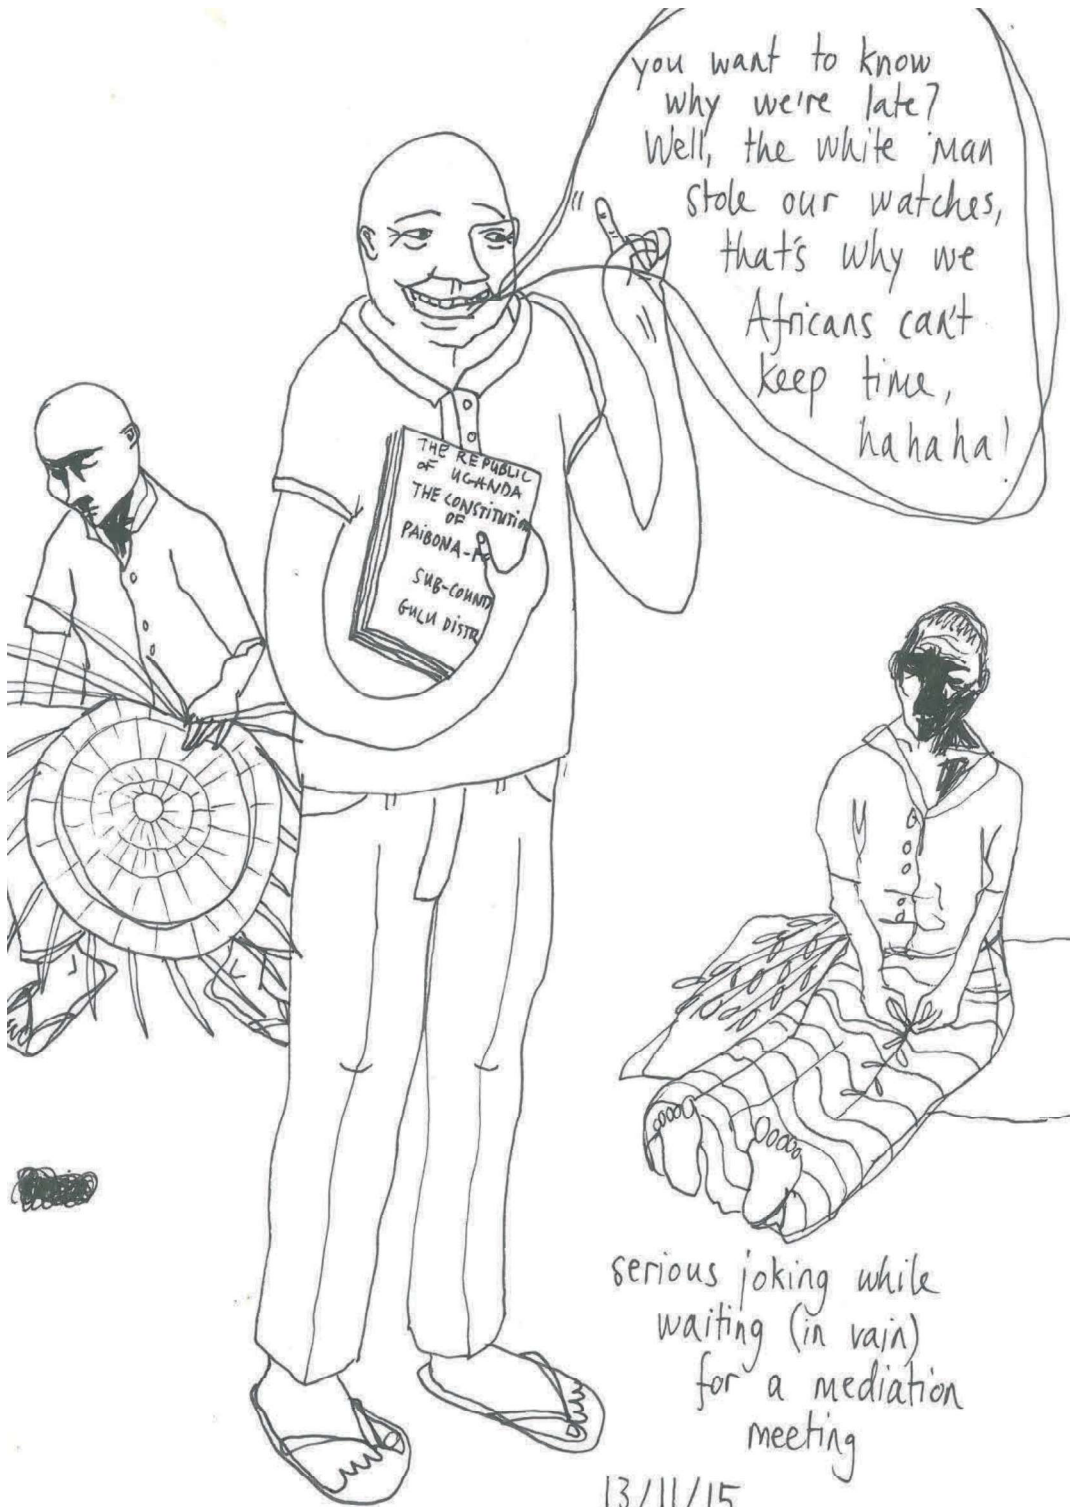 you want to know
why we're late?
Well, the white man
stole our watches,
that's why we
Africans can't
keep time,
hahaha!
THE REPUBLIC
OF UGANDA
THE CONSTITUTION
OF
PAIBONA-
SUB-COUNT
GULU DISTR
serious joking while
waiting (in vain)
for a mediation
meeting
13/11/15